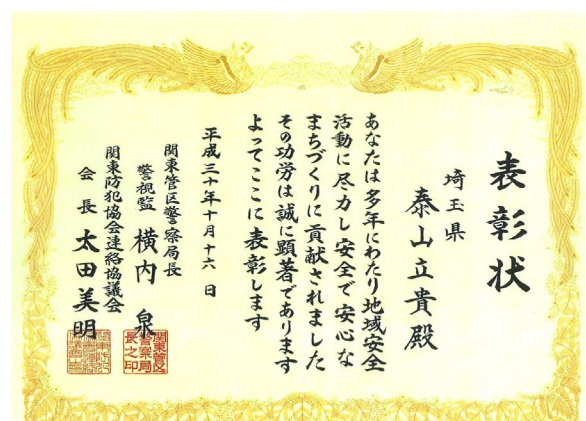 表彰状
埼玉県
泰山立貴殿
あなたは多年にわたり地域安全
活動に尽力し安全で安心な
まちづくりに貢献されました
その功労は誠に顕著であります
よってここに表彰します
平成三十年十月十六日
関東管区警察局長
警視監 横内泉
関東防犯協会連絡協議会
会長 太田美明
関東管区
警察局
長之印